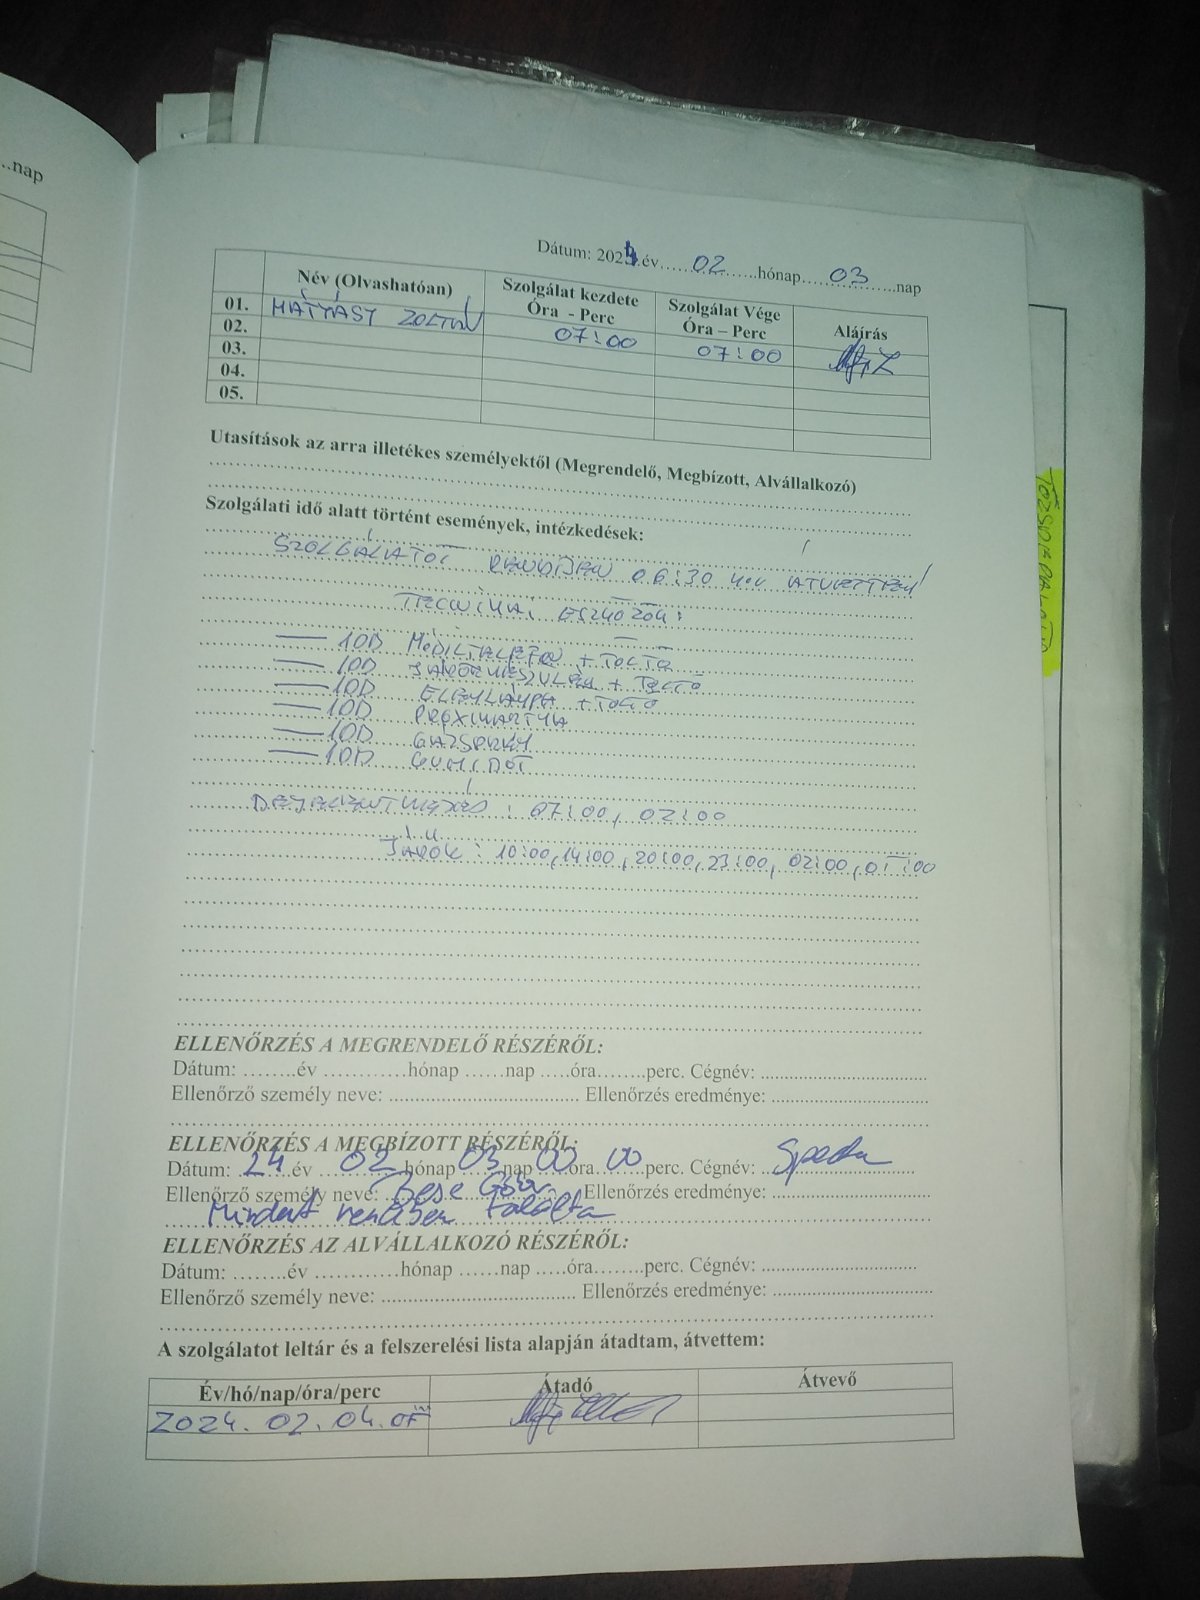 ..nap
Dátum: 2024.év 02 hónap 03 nap
Név (Olvashatóan) Szolgálat kezdete Óra - Perc Szolgálat Vége Óra – Perc Aláírás
01. MÁTYÁSY ZOLTÁN 07:00 07:00
02.
03.
04.
05.
Utasítások az arra illetékes személyektől (Megrendelő, Megbízott, Alvállalkozó)
Szolgálati idő alatt történt események, intézkedések:
SZOLGÁLATOT RENDBEN 06:30 ÁTVETTEM
TECHNIKAI ESZKÖZÖK:
— 1DB MOBILTELEFON + TÖLTŐ
— 1DB + TÖLTŐ
— 1DB ELEMLÁMPA + TOKTO
— 1DB PROXIKÁRTYA
— 1DB GÁZSPRAY
— 1DB GUMIBOT
BEJELENTKEZÉS : 07:00, 02:00
JÁRŐR : 10:00, 14:00, 20:00, 23:00, 02:00, 05:00
ELLENŐRZÉS A MEGRENDELŐ RÉSZÉRŐL:
Dátum: ........év ............hónap ......nap .....óra........perc. Cégnév:
Ellenőrző személy neve: Ellenőrzés eredménye:
ELLENŐRZÉS A MEGBÍZOTT RÉSZÉRŐL:
Dátum: 24 év 02 hónap 03 nap 00 óra 00 perc. Cégnév:
Ellenőrző személy neve: Bese Ellenőrzés eredménye:
Mindent rendben találta
ELLENŐRZÉS AZ ALVÁLLALKOZÓ RÉSZÉRŐL:
Dátum: ........év ............hónap ......nap .....óra........perc. Cégnév:
Ellenőrző személy neve: Ellenőrzés eredménye:
A szolgálatot leltár és a felszerelési lista alapján átadtam, átvettem:
Év/hó/nap/óra/perc Átadó Átvevő
2024. 02. 04.